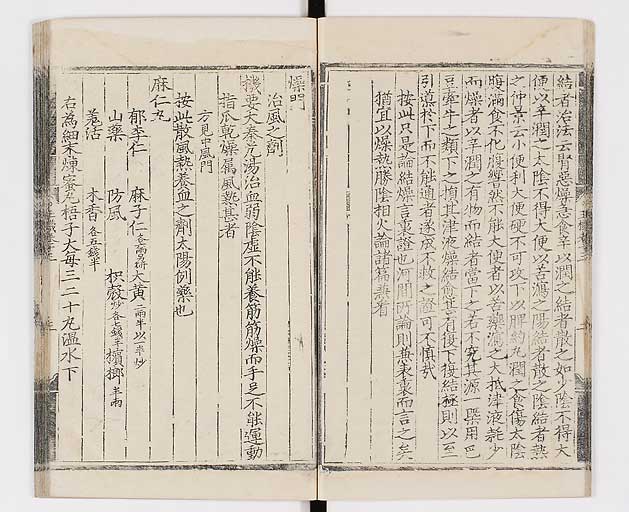 結者治法云腎惡燥急食辛以潤之結者散之如少陰不得大
便以辛潤之太陰不得大便以苦瀉之陽結者散之陰結者熱
之仲景云小便利大便硬不可攻下以脾約丸潤之食傷太陰
腹滿食不化腹響然不能大便者以苦藥瀉之大抵津液耗少
而燥者以辛潤之有物而結者當下之若不究其源一槩用巴
豆牽牛之類下之損其津液燥結愈甚有復下復結極則以至
引導於下而不能通者遂成不救之證可不慎哉
按此只是論結燥言裏證也河間所論則兼表裏而言之矣
猶宜以燥熱勝陰相火論諸篇兼看
燥門
治風之劑
機要大秦艽湯治血弱陰虛不能養筋筋燥而手足不能運動
指爪乾燥屬風熱甚者
方見中風門
按此散風熱養血之劑太陽例藥也
麻仁丸
郁李仁 麻子仁 大黃二兩半以半炒
山藥 防風 枳殼炒各七錢半 檳榔半兩
羗活 木香各五錢半
右為細末煉蜜丸梧子大每三二十丸溫水下